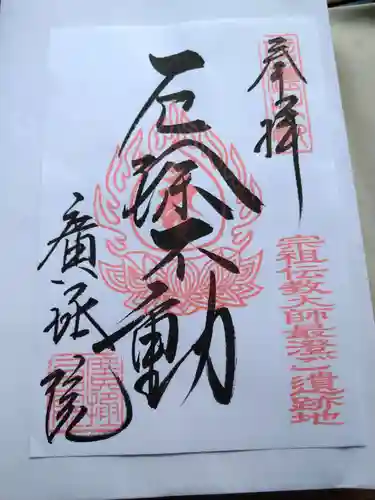 奉拝
宗祖伝教大師最澄ご遺跡地
厄除不動
廣拯院